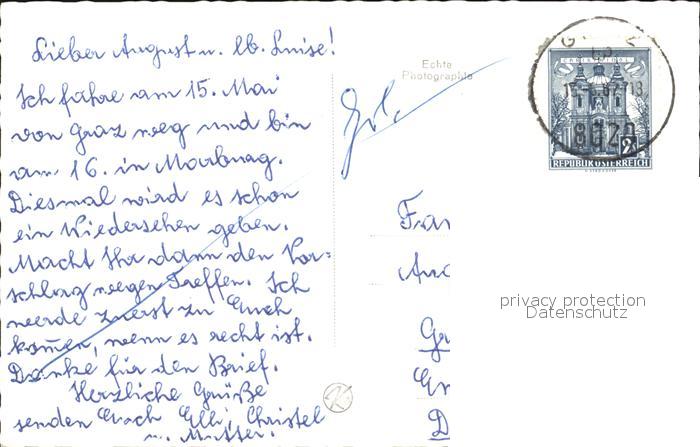 Lieber August u. lb. Luise!
Ich fahre am 15. Mai
von Graz weg und bin
am 16. in Marburg.
Diesmal wird es schon
ein Wiedersehen geben.
Macht Ihr dann den Vor=
schlag wegen Treffen. Ich
werde zuerst zu Euch
kommen, wenn es recht ist.
Danke für den Brief.
Herzliche Grüße
senden Euch Elli, Christel
u. Mutter.
Echte
Photographie
8020
2
REPUBLIK ÖSTERREICH
privacy protection
Datenschutz